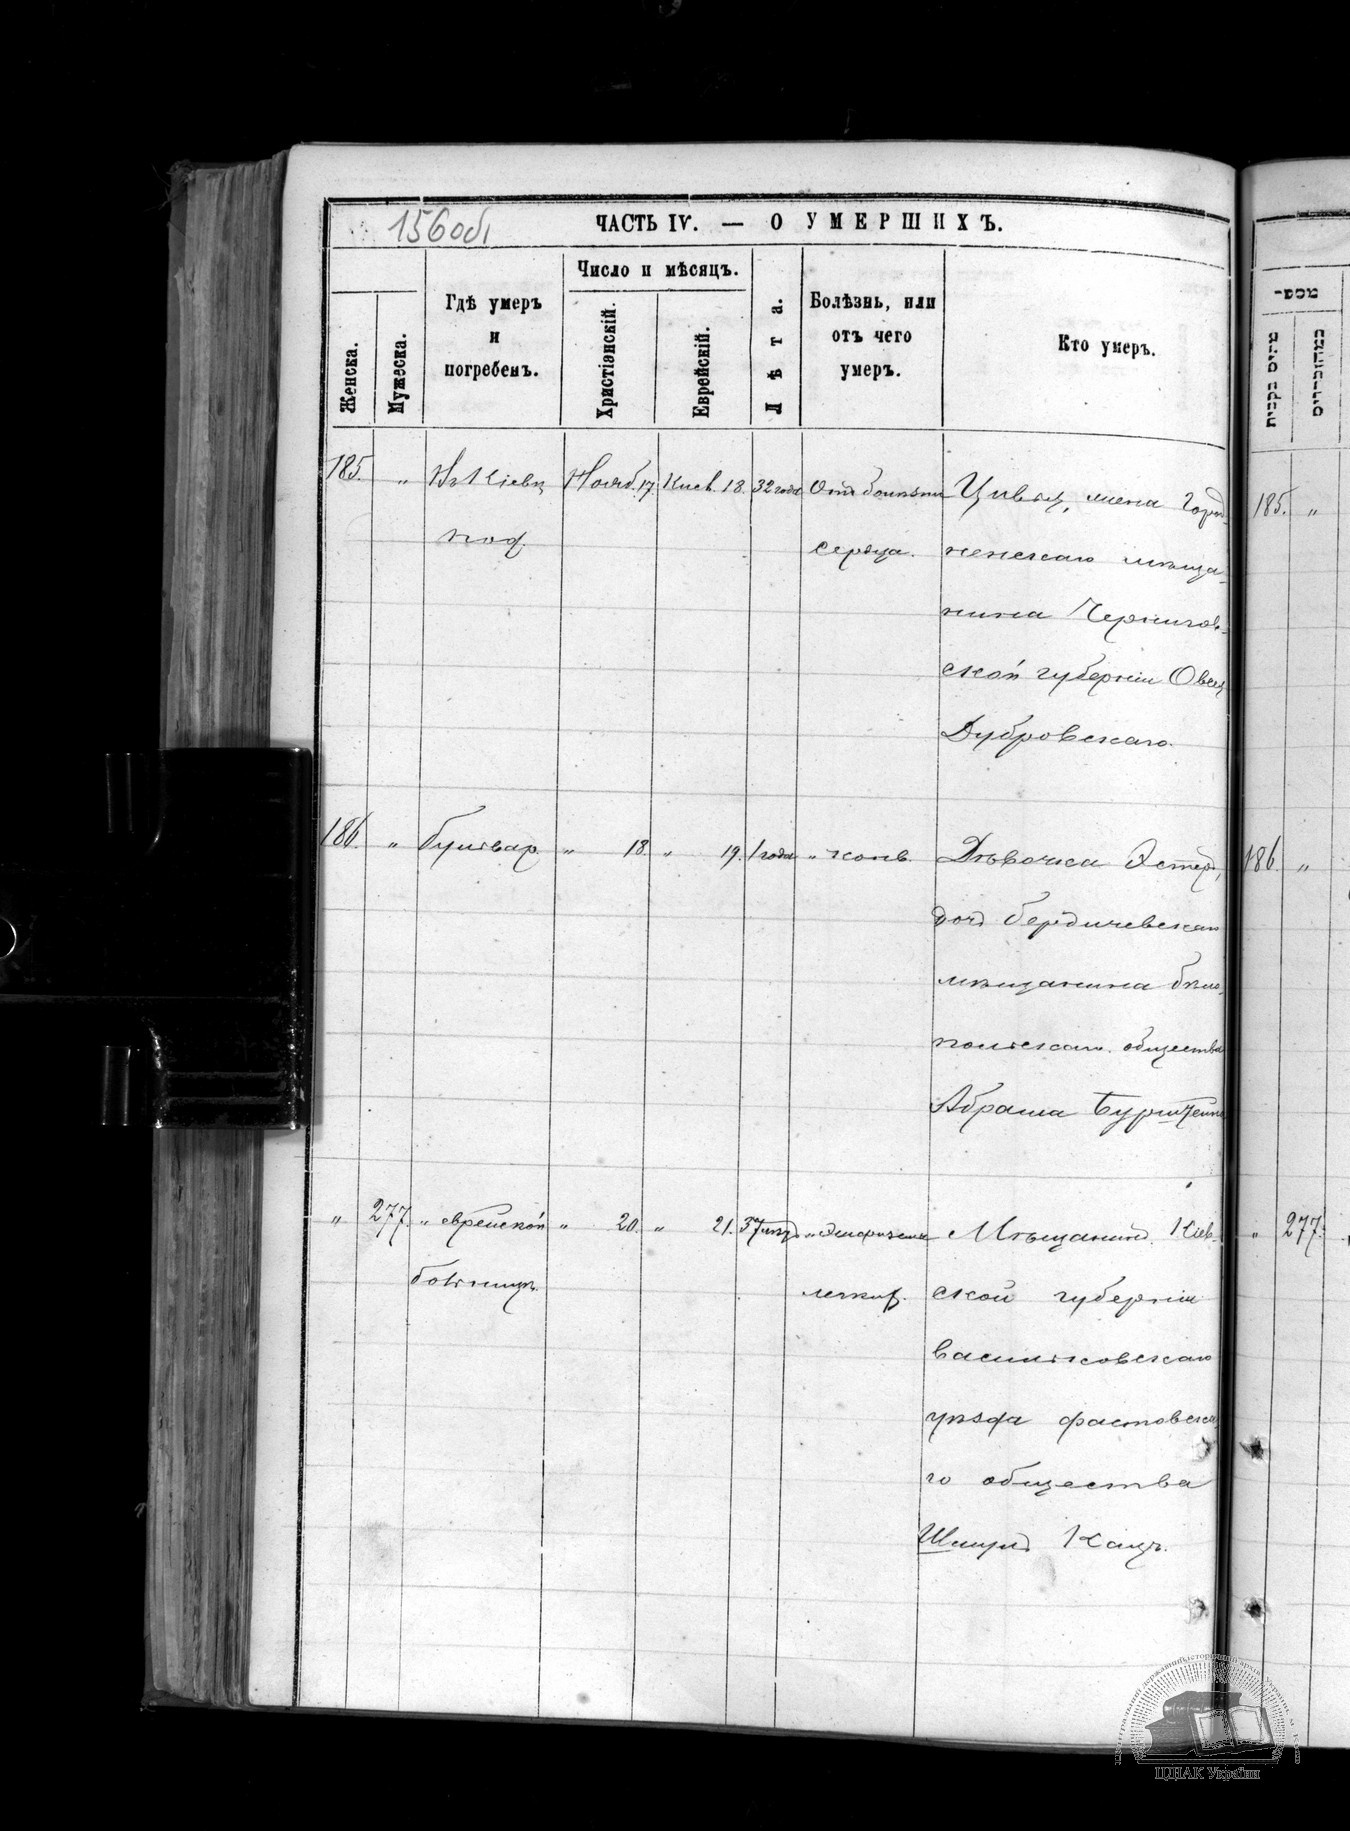 156об
ЧАСТЬ IV. — О УМЕРШИХЪ.
Женска.
Мужеска.
Гдѣ умеръ
и
погребенъ.
Число и мѣсяцъ.
Христіянскій.
Еврейскій.
Лѣта.
Болѣзнь, или
отъ чего
умеръ.
Кто умеръ.
185. " Въ Кіевѣ Нояб. 17. Кисл. 18. 32 года Отъ болѣзни
под.
сердца.
Цивья, жена Город-
ненскаго мѣща-
нина Чернигов-
ской губерніи Овсея
Дубровскаго.
186. " бульвар. " 18. " 19. 1 года " конв.
Дѣвочка Эстеръ,
дочь бердичевскаго
мѣщанина бѣло-
польскаго общества
Абрама Бурштейна
" 277. " еврейской " 20. " 21. 37
больницѣ.
легких.
Мѣщанинъ Кіев-
ской губерніи
васильковскаго
уѣзда фастовска-
го общества
Шмулъ Кацъ.
מספ-
185. "
186. "
" 277.
ЦДІАК України